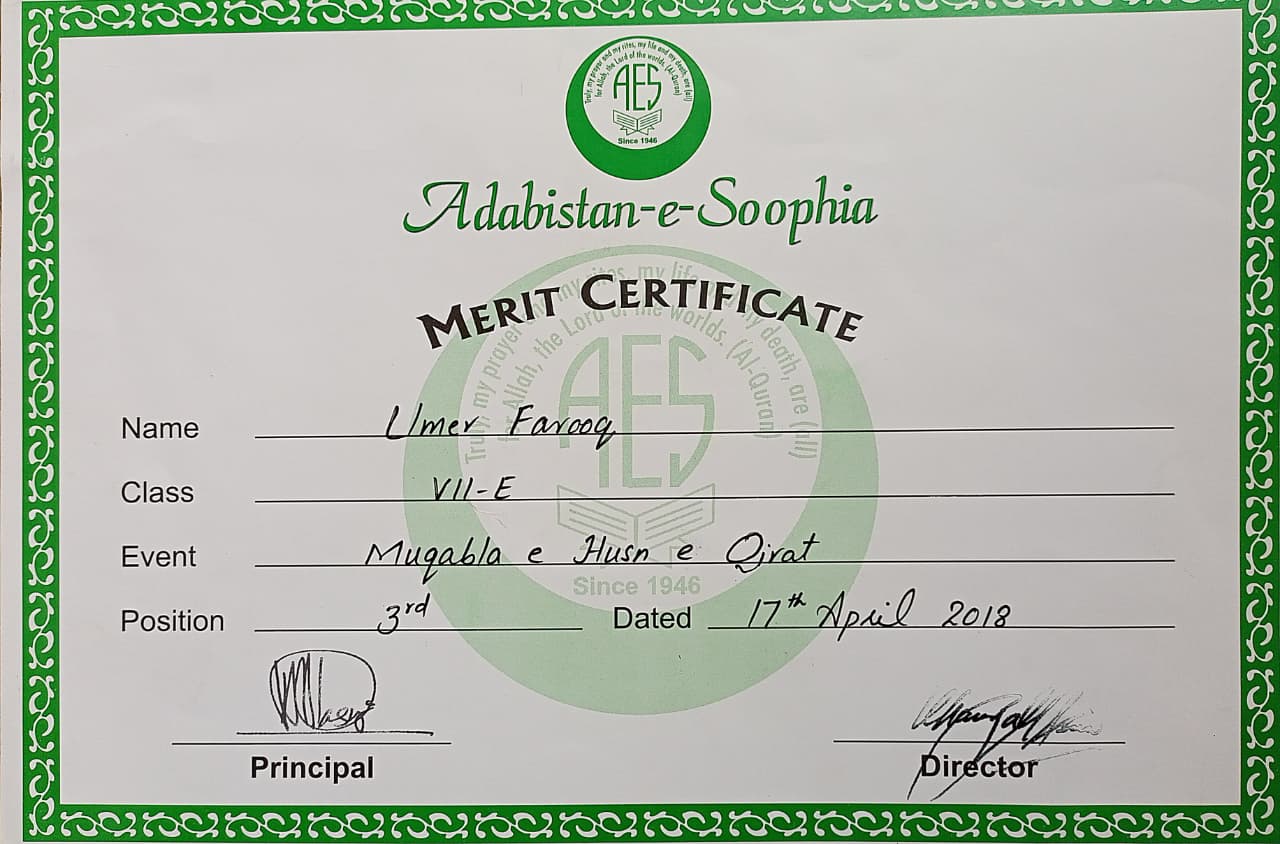 Truly, my prayer and my rites, my life and my death, are (all)
for Allah, the Lord of the worlds. (Al-Quran)
AES
Since 1946
Adabistan-e-Soophia
MERIT CERTIFICATE
Truly, my prayer and my rites, my life and my death, are (all)
for Allah, the Lord of the worlds. (Al-Quran)
AES
Name Umer Farooq
Class VII-E
Event Muqabla e Husn e Qirat
Since 1946
Position 3rd Dated 17th April 2018
Principal Director